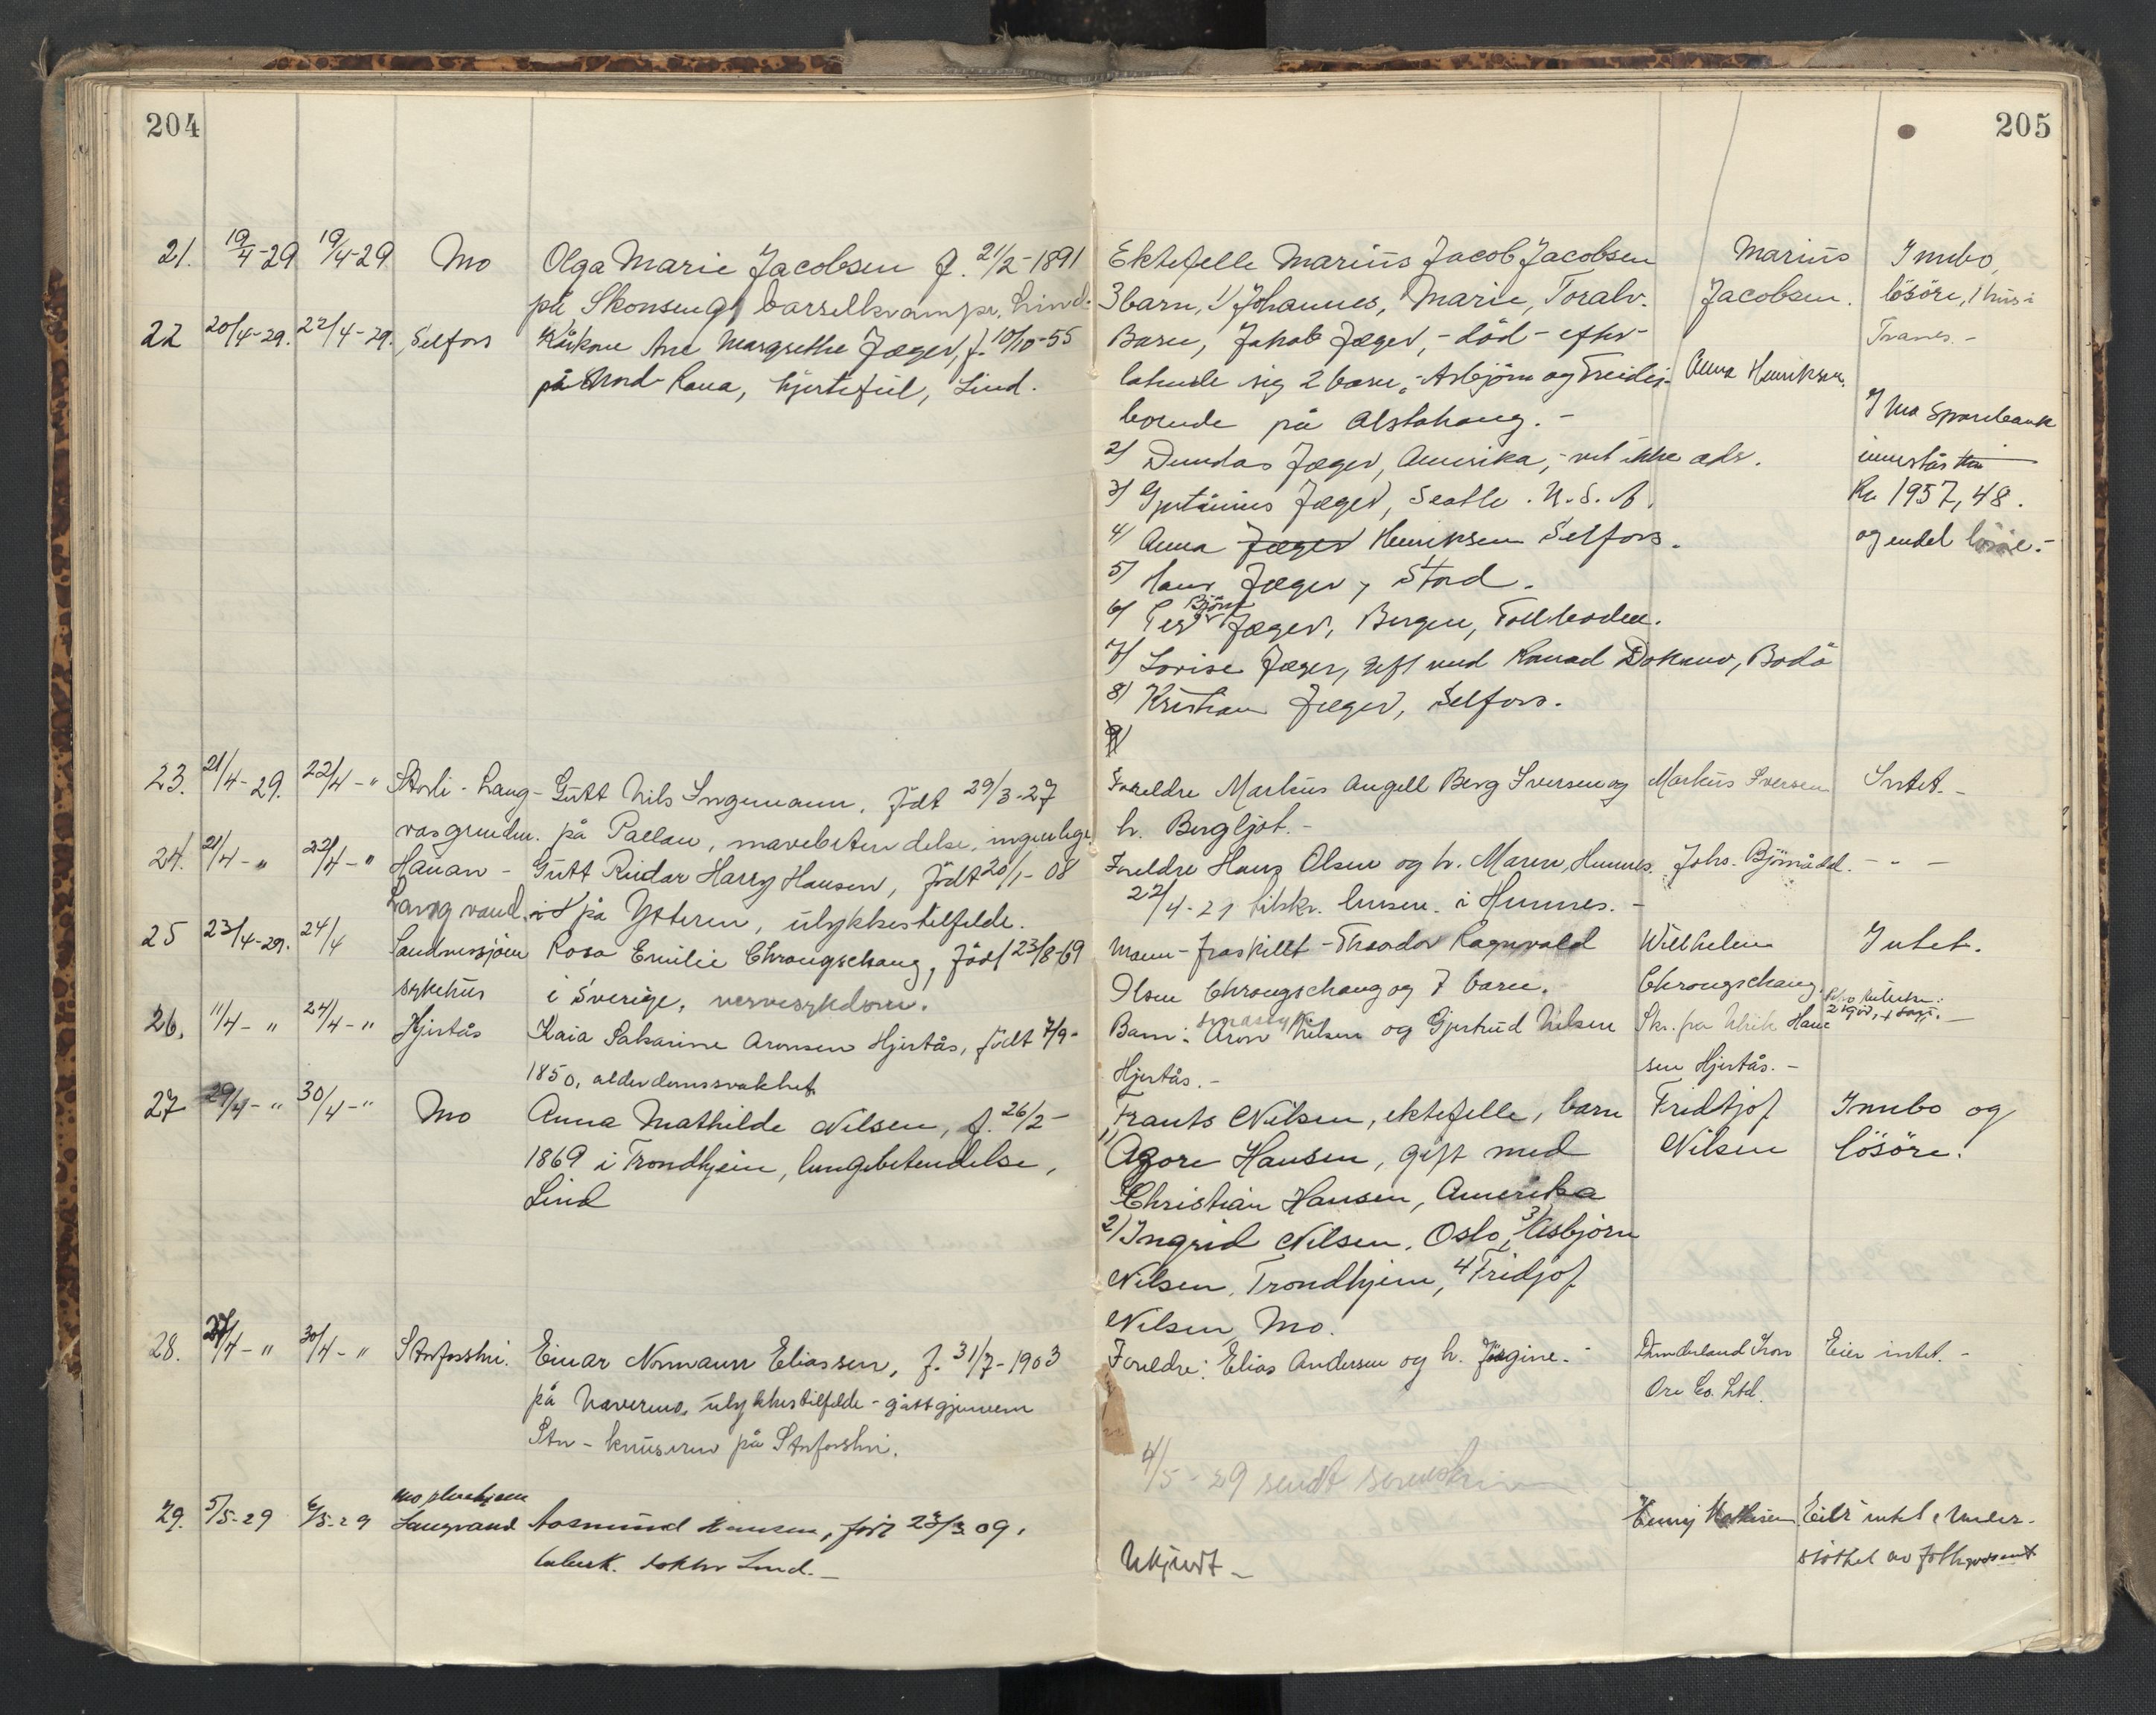 204
205
21. 19/4-29 19/4-29 Mo Olga Marie Jacobsen f. 21/2-1891 Ektefelle Marius Jacob Jacobsen Marius Innbo,
på Skonseng, barselkvampe, Lind. 3 barn, 1/ Johannes, Marie, Toralv. Jacobsen. lösöre, 1 hus i
22 20/4-29. 22/4-29. Selfors Kårkone Ane Margrethe Jæger, f. 10/10-55 Barn, Jakob Jæger, - död - efter- Tranes. -
på Nord-Rana, hjertefeil, Lind. latende sig 2 barn, - Asbjörn og Anna Henriksen.
boende på Alstahaug. - I Mo Sparebank
2/ Dundas Jæger, Amerika, - vet ikke adr. innestår
3/ Jæger, Seatle. U.S.A. Kr. 1957,48.
4/ Anna Jæger Henriksen Selfors. og endel lösöre. -
5/ Hans Jæger, Stord.
6/ Björn Jæger, Bergen, Tollboden.
7/ Lovise Jæger, gift med Konrad Bodö
8/ Kristian Jæger, Selfors.
9/
23. 21/4-29. 22/4-" Storli - Lang- Gutt Nils Ingemann, födt 29/3-27 Foreldre Markus Angell Berg Iversen og Markus Iversen Intet. -
vasgrunden. på Pallen, mavebetendelse, ingen lege. h. Bergljot. -
24. 21/4-" 22/4-" Hauan - Gutt Reidar Harry Hansen, födt 20/1-08 Foreldre Hans Olsen og h. Maren, Hemnes. Johs. Björnådal. - " -
Langvand. på Ytteren, ulykkestilfelde. 22/4-29 tilskr. lensm. i Hemnes. -
25 23/4-29. 24/4 Sandnessjöen Rosa Emilie Chrongschaug, född 23/8-69 Mann - fraskillt - Theodor Ragnvald Wilhelm Intet.
sykehus i Sverige, nervesykdom. Olsen Chrongschaug og 7 barn. Chrongschaug.
26. 11/4-" 24/4-" Hjertås Kaia Sakarine Aronsen Hjertås, födt 7/9- Barn: Aron Nilsen og Gjertrud Nilsen Skr. fra Ulrik Han-
1850, alderdomssvakhet. Hjertås. - sen Hjertås. -
27 29/4-" 30/4-" Mo Anna Mathilde Nilsen, f. 26/2- Frants Nilsen, ektefelle, barn Fridtjof Innbo og
1869 i Trondhjem, lungebetendelse, 1/ Agore Hansen, gift med Nilsen lösöre.
Lind Christian Hansen, Amerika
2/ Ingrid Nilsen, Oslo, 3/ Asbjörn
Nilsen, Trondhjem, 4 Fridjof
Nilsen Mo.
28. 27/4-" 30/4-" Storforshei. Einar Normann Eliassen, f. 31/7-1903 Foreldre: Elias Andersen og h. Jörgine. - Dunderland Iron Eier intet. -
på Nævernes, ulykkestilfelde - gått gjennem Ore Co. Ltd.
Sten-knuseren på Storforshei.
4/5-29 sendt
29. 5/5-29 6/5-29 Mo pleiehjem Langvand Aasmund Hansen, föd 23/3 09, Henry Mathisen Eier intet. Under-
tuberk. doktor Lind. - Ukjendt - stöttet av